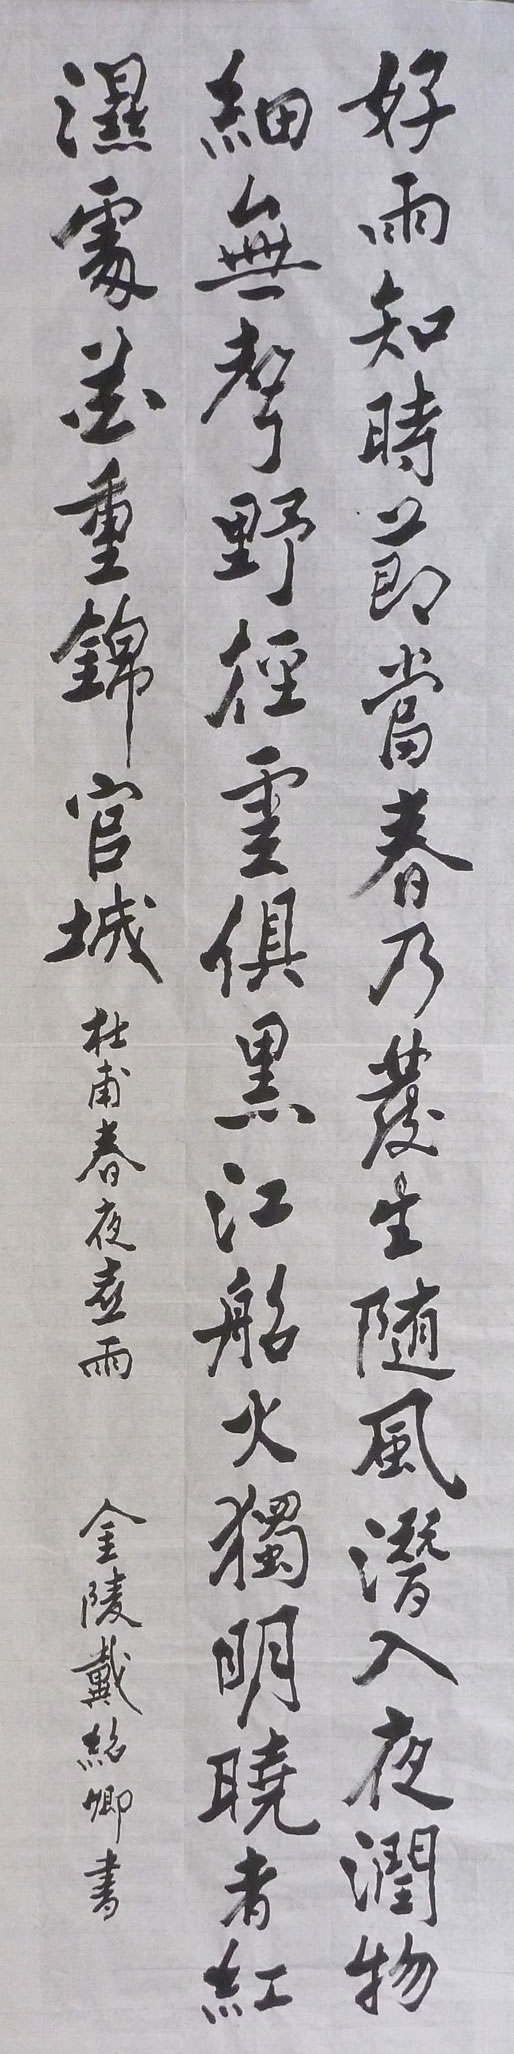 好雨知時節當春乃發生随風潛入夜潤物
細無聲野徑雲俱黑江船火獨明曉看紅
濕處花重錦官城
杜甫春夜喜雨
金陵戴銘卿書